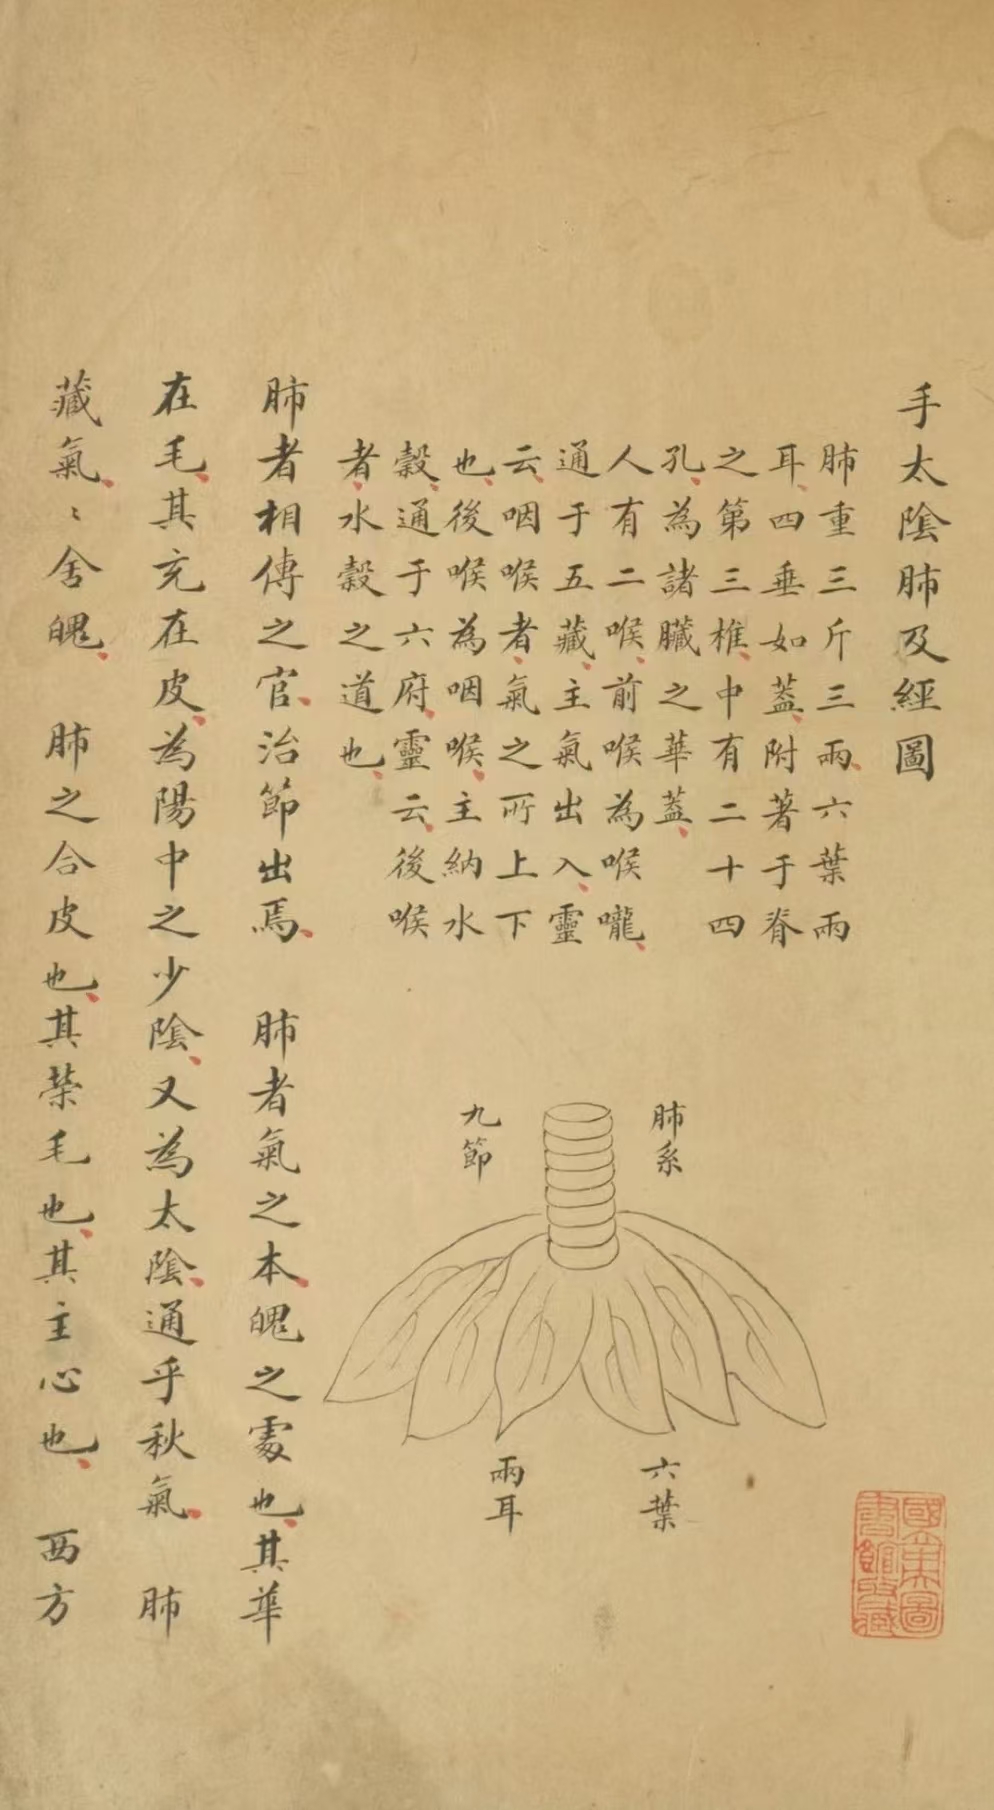 手太陰肺及經圖
肺重三斤三兩六葉兩
耳四垂如蓋附著于脊
之第三椎中有二十四
孔為諸臟之華蓋
人有二喉前喉為喉嚨
通于五藏主氣出入靈
云咽喉者氣之所上下
也後喉為咽喉主納水
穀通于六府靈云後喉
者水穀之道也
肺者相傳之官治節出焉 肺者氣之本魄之處也其華
在毛其充在皮為陽中之少陰又為太陰通乎秋氣 肺
藏氣〻舍魄 肺之合皮也其榮毛也其主心也 西方
肺系
九節
六葉
兩耳
國立東圖
書館收藏